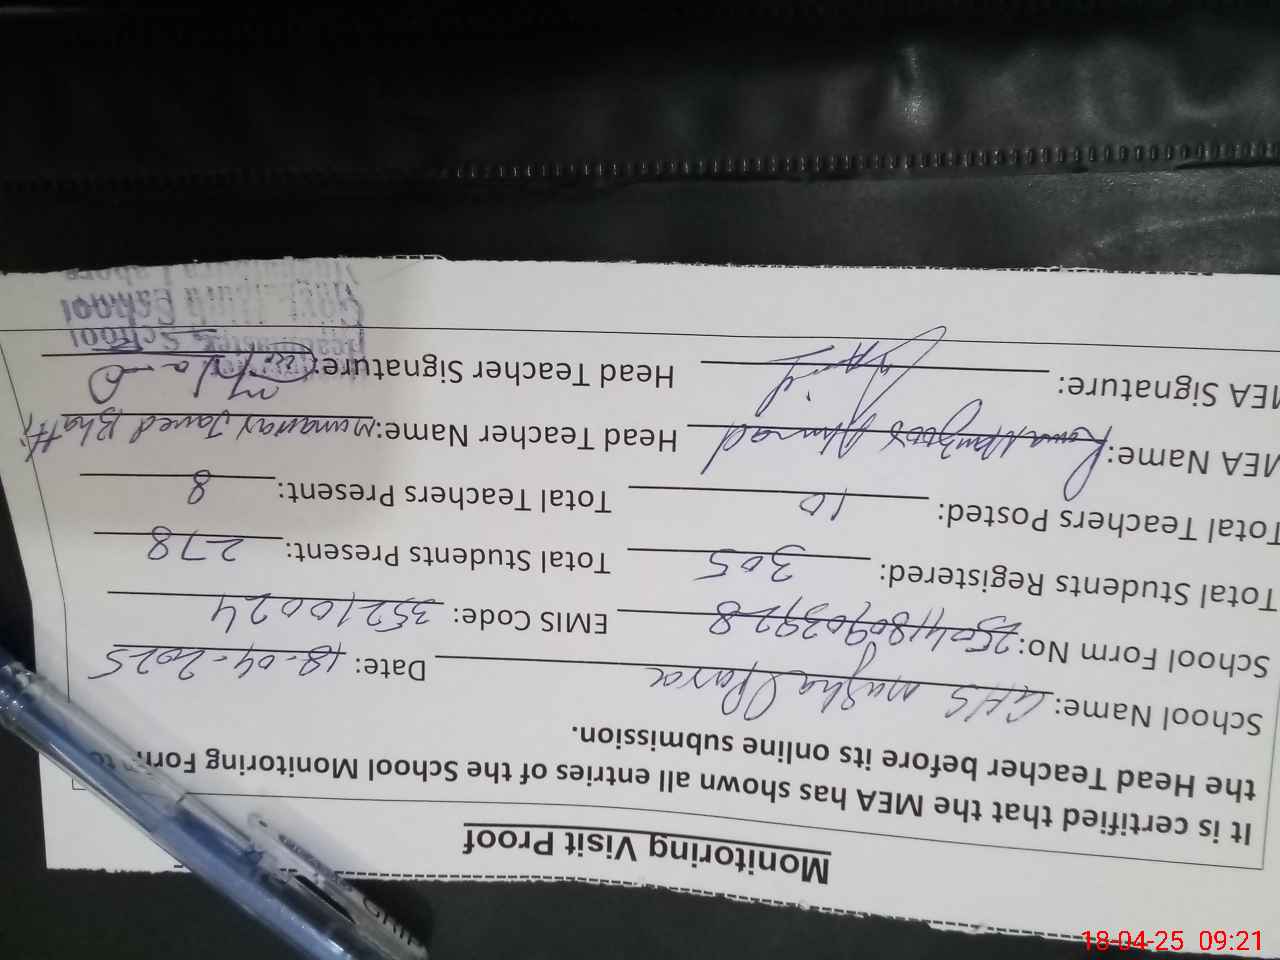 Monitoring Visit Proof
It is certified that the MEA has shown all entries of the School Monitoring Form to
the Head Teacher before its online submission.
School Name: GHS Date: 18-04-2025
School Form No: EMIS Code: 35210024
Total Students Registered: 305 Total Students Present: 278
Total Teachers Posted: 10 Total Teachers Present: 8
MEA Name: Rana Manzoor Ahmad Head Teacher Name: Munawar Javed Bhatti
MEA Signature: Head Teacher Signature:
18-04-25 09:21